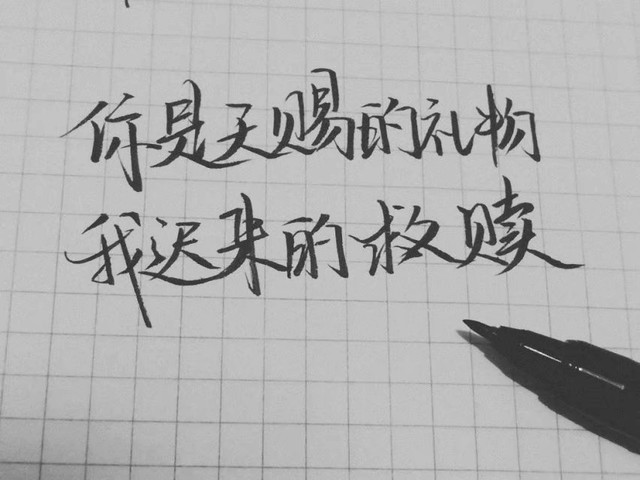 你是天赐的礼物
我迟来的救赎